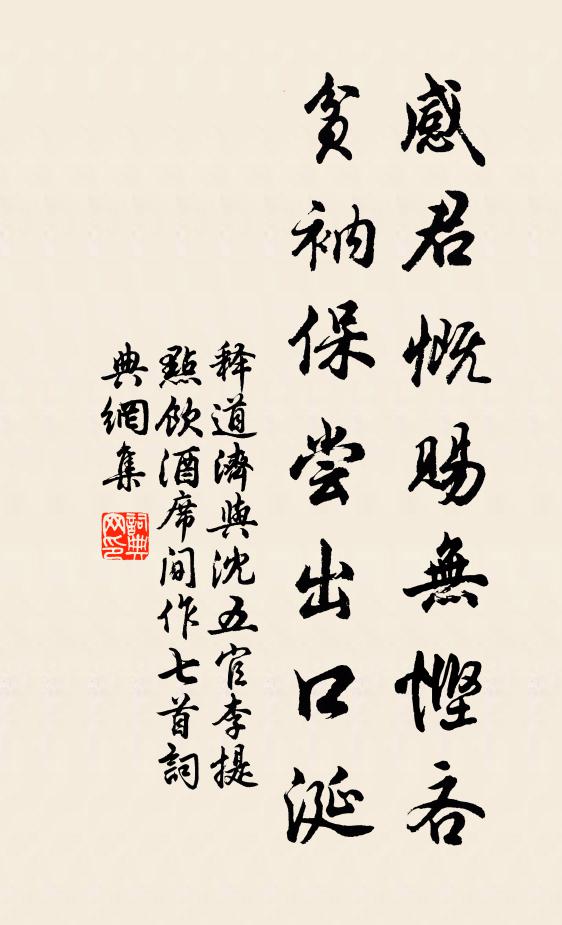 感君慨賜無慳吝
貧衲保嘗出口涎
释道濟與沈五官李提
點飲酒席间作七首詞
典網集
詞典網印